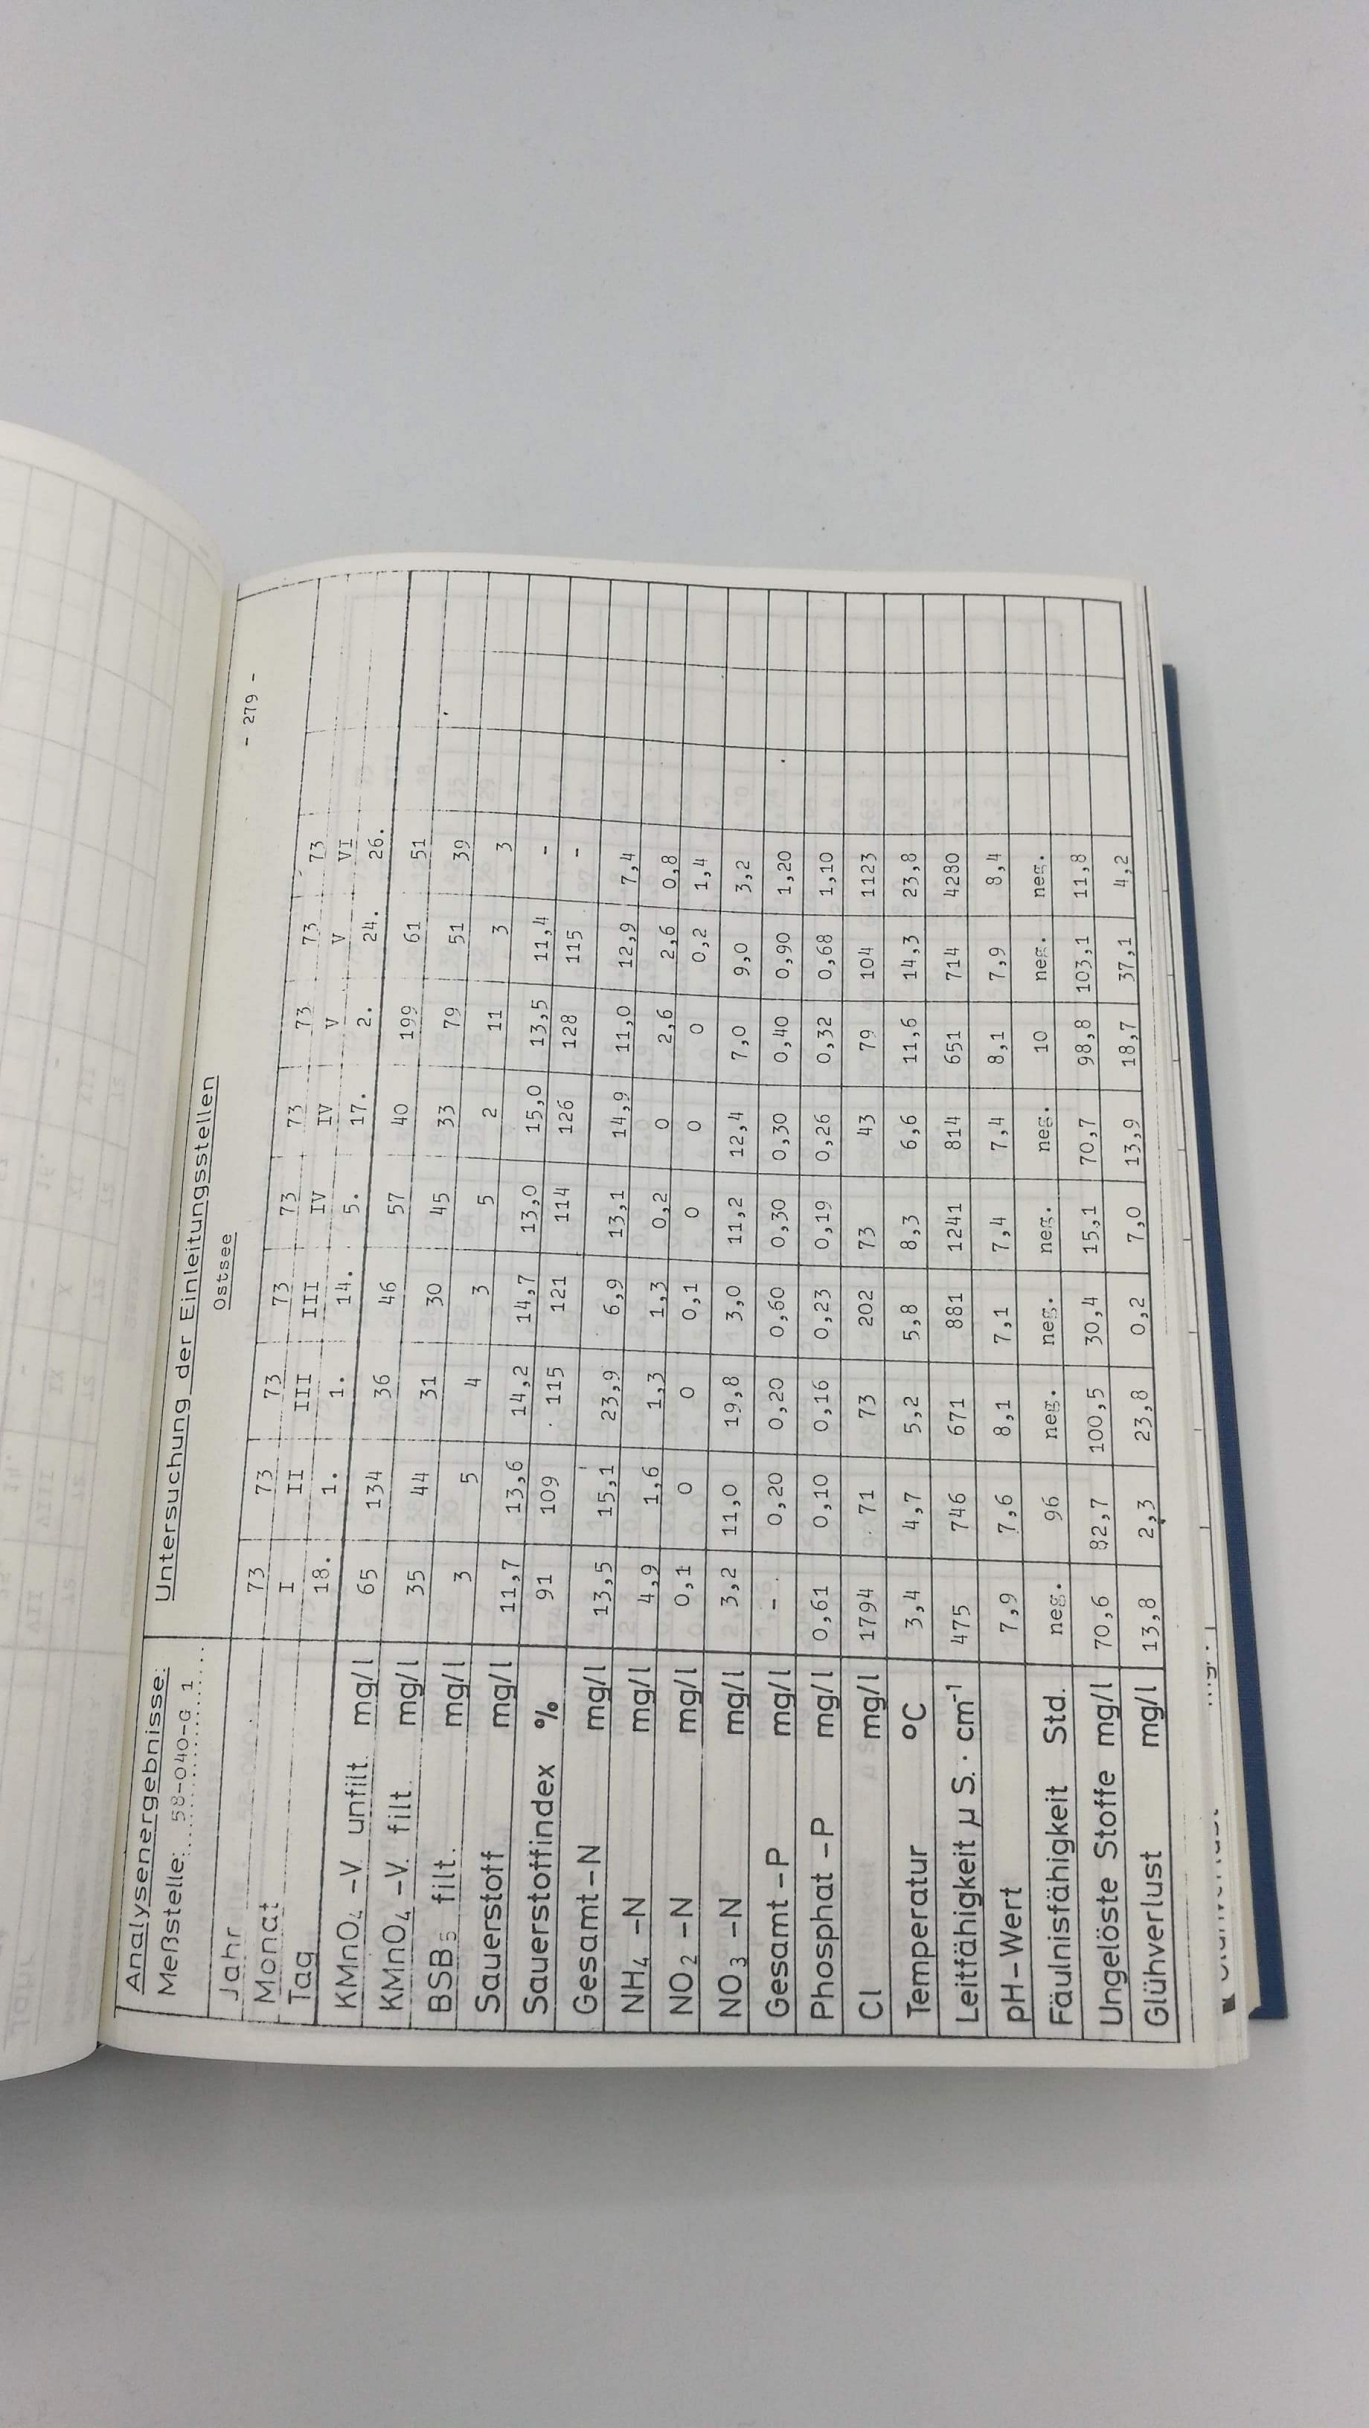 - 279 -
Untersuchung der Einleitungsstellen
Ostsee
Analysenergebnisse:
Meßstelle: 58-040-G 1
Jahr 73 73 73 73 73 73 73 73 73
Monat I II III III IV IV V V VI
Tag 18. 1. 1. 14. 5. 17. 2. 24. 26.
KMnO4 -V. unfilt. mg/l 65 134 36 46 57 40 199 61 51
KMnO4 -V. filt. mg/l 35 44 31 30 45 33 79 51 39
BSB5 filt. mg/l 3 5 4 3 5 2 11 3 3
Sauerstoff mg/l 11,7 13,6 14,2 14,7 13,0 15,0 13,5 11,4 -
Sauerstoffindex % 91 109 115 121 114 126 128 115 -
Gesamt-N mg/l 13,5 15,1 23,9 6,9 13,1 14,9 11,0 12,9 7,4
NH4 -N mg/l 4,9 1,6 1,3 1,3 0,2 0 2,6 2,6 0,8
NO2 -N mg/l 0,1 0 0 0,1 0 0 0 0,2 1,4
NO3 -N mg/l 3,2 11,0 19,8 3,0 11,2 12,4 7,0 9,0 3,2
Gesamt -P mg/l - 0,20 0,20 0,60 0,30 0,30 0,40 0,90 1,20
Phosphat -P mg/l 0,61 0,10 0,16 0,23 0,19 0,26 0,32 0,68 1,10
Cl mg/l 1794 71 73 202 73 43 79 104 1123
Temperatur °C 3,4 4,7 5,2 5,8 8,3 6,6 11,6 14,3 23,8
Leitfähigkeit µ S. · cm-1 475 746 671 881 1241 814 651 714 4280
pH-Wert 7,9 7,6 8,1 7,1 7,4 7,4 8,1 7,9 8,4
Fäulnisfähigkeit Std. neg. 96 neg. neg. neg. neg. 10 neg. neg.
Ungelöste Stoffe mg/l 70,6 82,7 100,5 30,4 15,1 70,7 98,8 103,1 11,8
Glühverlust mg/l 13,8 2,3 23,8 0,2 7,0 13,9 18,7 37,1 4,2